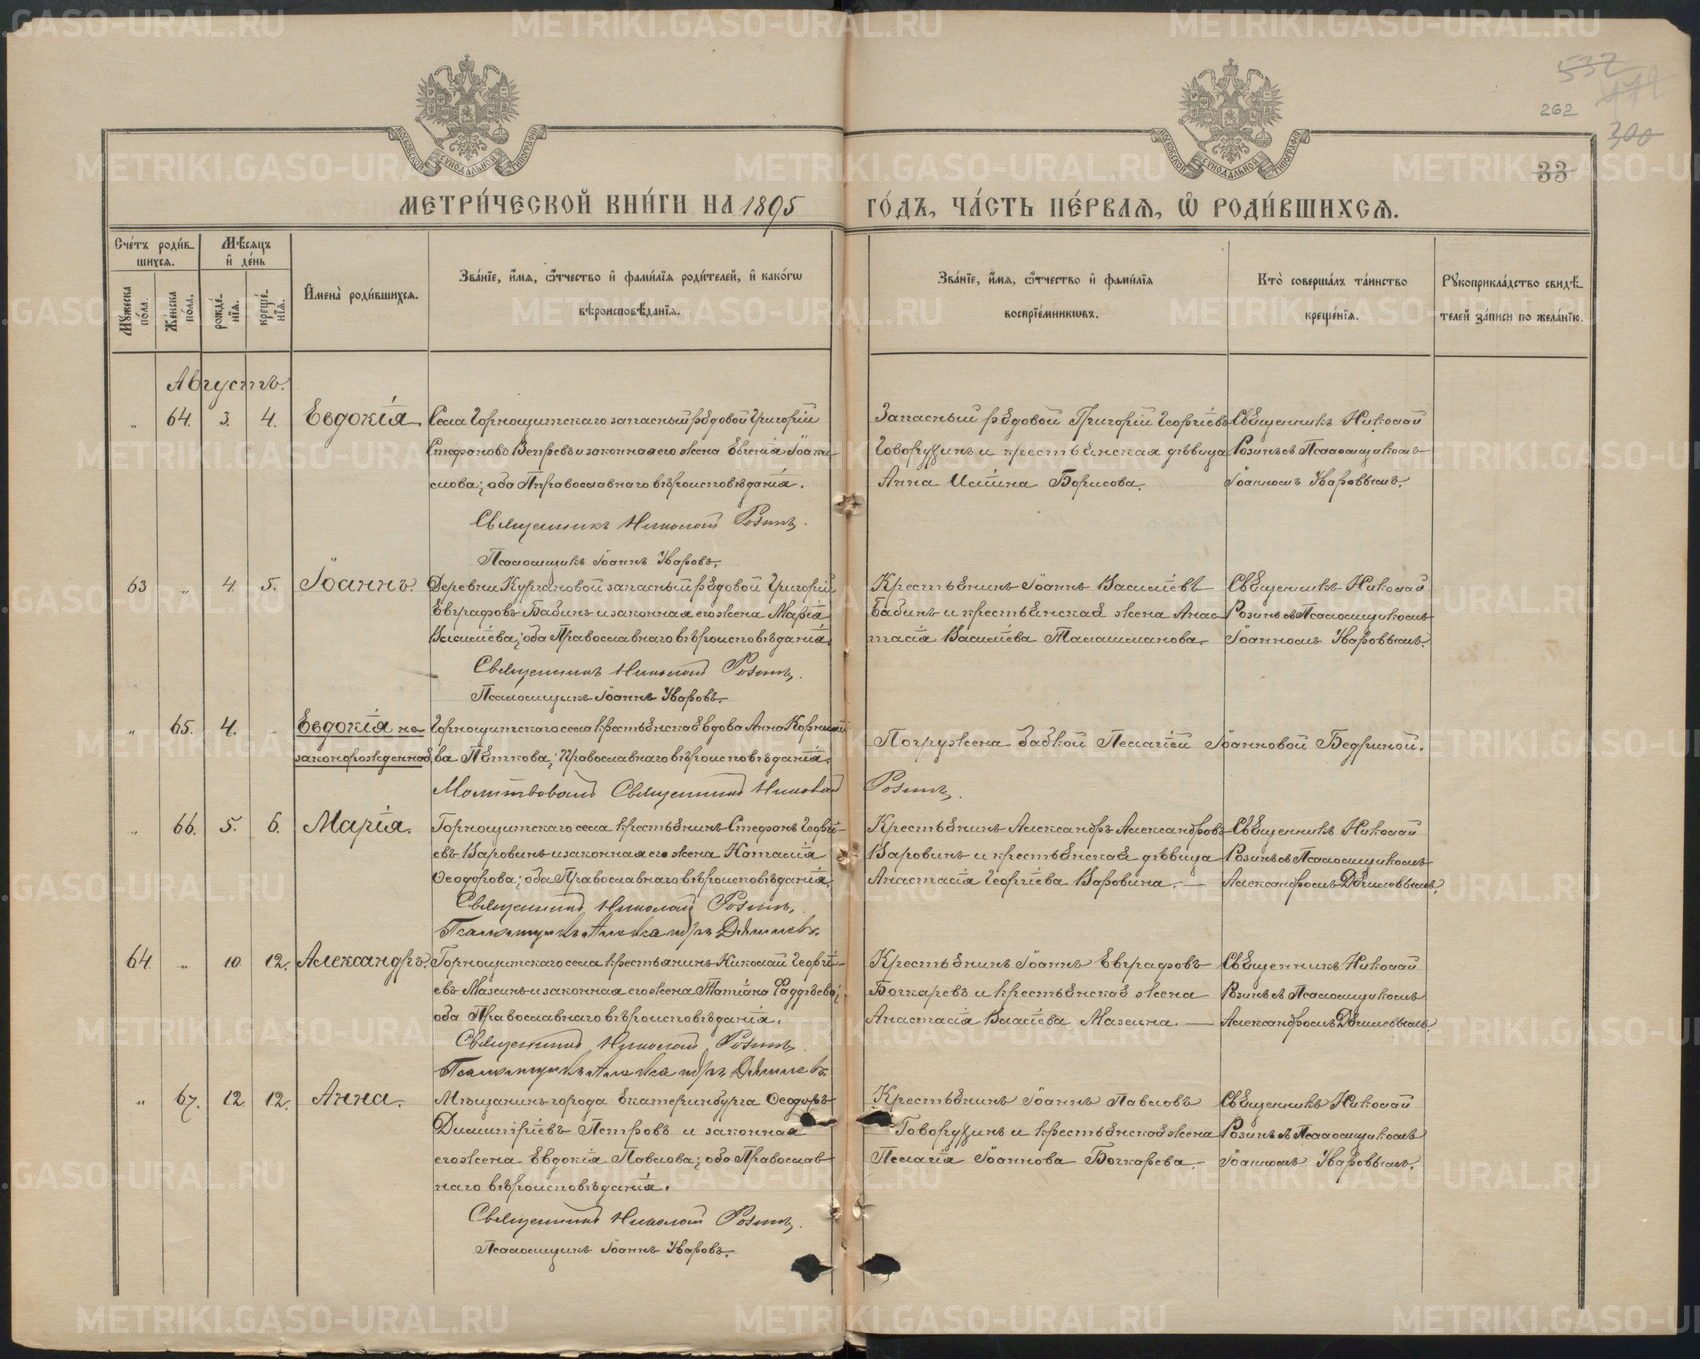 532
262
300
33
МЕТРИ́ЧЕСКОЙ КНИ́ГИ НА 1895 ГО́ДЪ, ЧА́СТЬ ПЕ́РВАЯ, Ѡ РОДИ́ВШИХСЯ.
Сче́тъ роди́в-
шихся.
Мѣ́сяцъ
и де́нь
Му́жеска по́ла.
Же́нска по́ла.
рожде́нїя.
креще́нїя.
И́мена̀ роди́вшихся.
Зва́нїе, и́мя, ѻ́тчество и фами́лїя роди́телей, и како́гѡ
вѣроисповѣ́данїя.
Зва́нїе, и́мя, ѻ́тчество и фами́лїя
воспрїе́мникѡвъ.
Кто̀ соверша́лъ та́инство
креще́нїя.
Рукоприкла́дство свидѣ́-
телей за́писи по жела́нїю.
Августъ.
„ 64. 3. 4. Евдокія. Села Горнощитскаго запасный рядовой Григорій
Стефановъ Вепревъ и законная его жена Евгенія Іоаки-
мова; оба Православнаго вѣроисповѣданія.
Священникъ Николай Розинъ.
Псаломщикъ Іоаннъ Уваровъ.
Запасный рядовой Григорій Георгіевъ
Говорухинъ и крестьянская дѣвица
Анна Борисова.
Священникъ Николай
Розинъ съ Псаломщикомъ
Іоанномъ Уваровымъ.
63 „ 4. 5. Іоаннъ. Деревни Кургановой запасный рядовой Григорій
Евграфовъ Бабинъ и законная его жена Марія
Власіева; оба Православнаго вѣроисповѣданія.
Священникъ Николай Розинъ.
Псаломщикъ Іоаннъ Уваровъ.
Крестьянинъ Іоаннъ Василіевъ
Бабинъ и крестьянская жена Анас-
тасія Василіева Талашманова.
Священникъ Николай
Розинъ съ Псаломщикомъ
Іоанномъ Уваровымъ.
„ 65. 4. „ Евдокія не-
законорожденная.
Горнощитскаго села крестьянская вдова Анна Корниліе-
ва Пяткова; Православнаго вѣроисповѣданія.
Молитвовалъ Священникъ Николай Розинъ.
Погружена бабкой Пелагіей Іоанновой Бедриной.
„ 66. 5. 6. Марія. Горнощитскаго села крестьянинъ Стефанъ Георгі-
евъ Варовинъ и законная его жена Наталія
Ѳеодорова; оба Православнаго вѣроисповѣданія.
Священникъ Николай Розинъ.
Псаломщикъ Александръ
Крестьянинъ Александръ Александровъ
Варовинъ и крестьянская дѣвица
Анастасія Георгіева Варовина.
Священникъ Николай
Розинъ съ Псаломщикомъ
Александромъ
64. „ 10 12. Александръ. Горнощитскаго села крестьянинъ Николай Георгі-
евъ Мазеинъ и законная его жена Татіана Фаддѣева;
оба Православнаго вѣроисповѣданія.
Священникъ Николай Розинъ.
Псаломщикъ Александръ
Крестьянинъ Іоаннъ Евграфовъ
Бочкаревъ и крестьянская жена
Анастасія Власіева Мазеина.
Священникъ Николай
Розинъ съ Псаломщикомъ
Александромъ
„ 67. 12. 12. Анна. Мѣщанинъ города Екатеринбурга Ѳеодоръ
Димитріевъ Петровъ и законная
его жена Евдокія Павлова; оба Православ-
наго вѣроисповѣданія.
Священникъ Николай Розинъ.
Псаломщикъ Іоаннъ Уваровъ.
Крестьянинъ Іоаннъ Павловъ
Говорухинъ и крестьянская жена
Пелагія Іоаннова Бочкарева.
Священникъ Николай
Розинъ съ Псаломщикомъ
Іоанномъ Уваровымъ.
METRIKI.GASO-URAL.RU